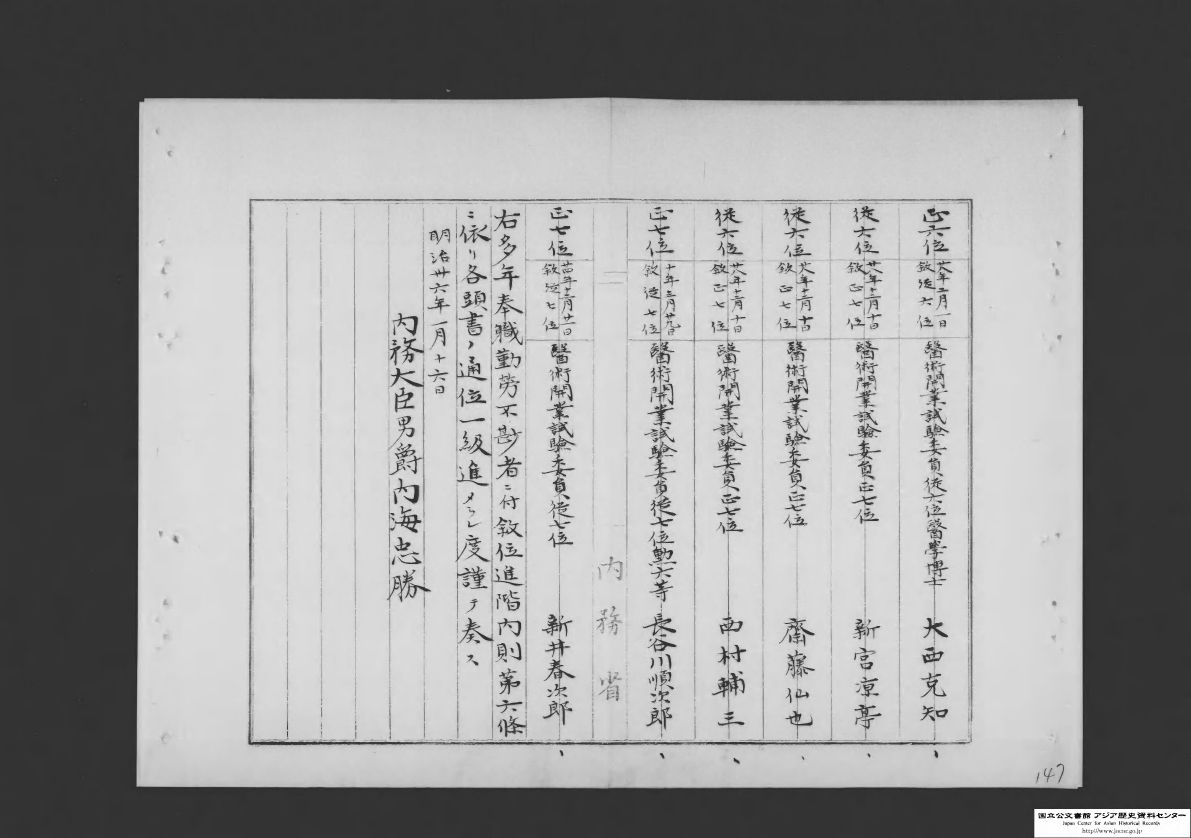 正六位 廿八年二月一日敘從六位 醫術開業試驗委員從六位醫學博士 大西克知
從六位 廿八年十二月十日敘正七位 醫術開業試驗委員正七位 新宮凉亭
從六位 廿八年十二月十日敘正七位 醫術開業試驗委員正七位 齋藤仙也
從六位 廿八年十二月十日敘正七位 醫術開業試驗委員正七位 西村輔三
正七位 十年三月廿九日敘從七位 醫術開業試驗委員從七位勲六等 長谷川順次郎
内務省
正七位 廿四年十二月廿一日敘從七位 醫術開業試驗委員從七位 新井春次郎
右多年奉職勤労不尠者ニ付敘位進階内則第六條
ニ依リ各頭書ノ通位一級進メラレ度謹テ奏ス
明治卅六年一月十六日
内務大臣男爵内海忠勝
147
国立公文書館 アジア歴史資料センター
Japan Center for Asian Historical Records
http://www.jacar.go.jp